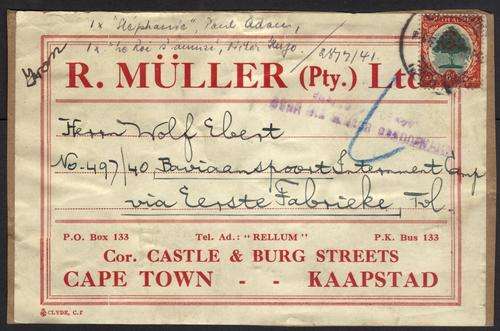 1 x "Stephanie", Paul Adam,
1 x "Le Roi s'amuse", Victor Hugo / 28/7/41
R. MÜLLER (Pty.) Ltd.
Herrn Wolf Ebert
No. 497/40 Baviaanspoort Internment Camp
via Eerste Fabrieke, Tvl.
P.O. Box 133 Tel. Ad.: "RELLUM" P.K. Bus 133
Cor. CASTLE & BURG STREETS
CAPE TOWN - - KAAPSTAD
CLYDE, C.T